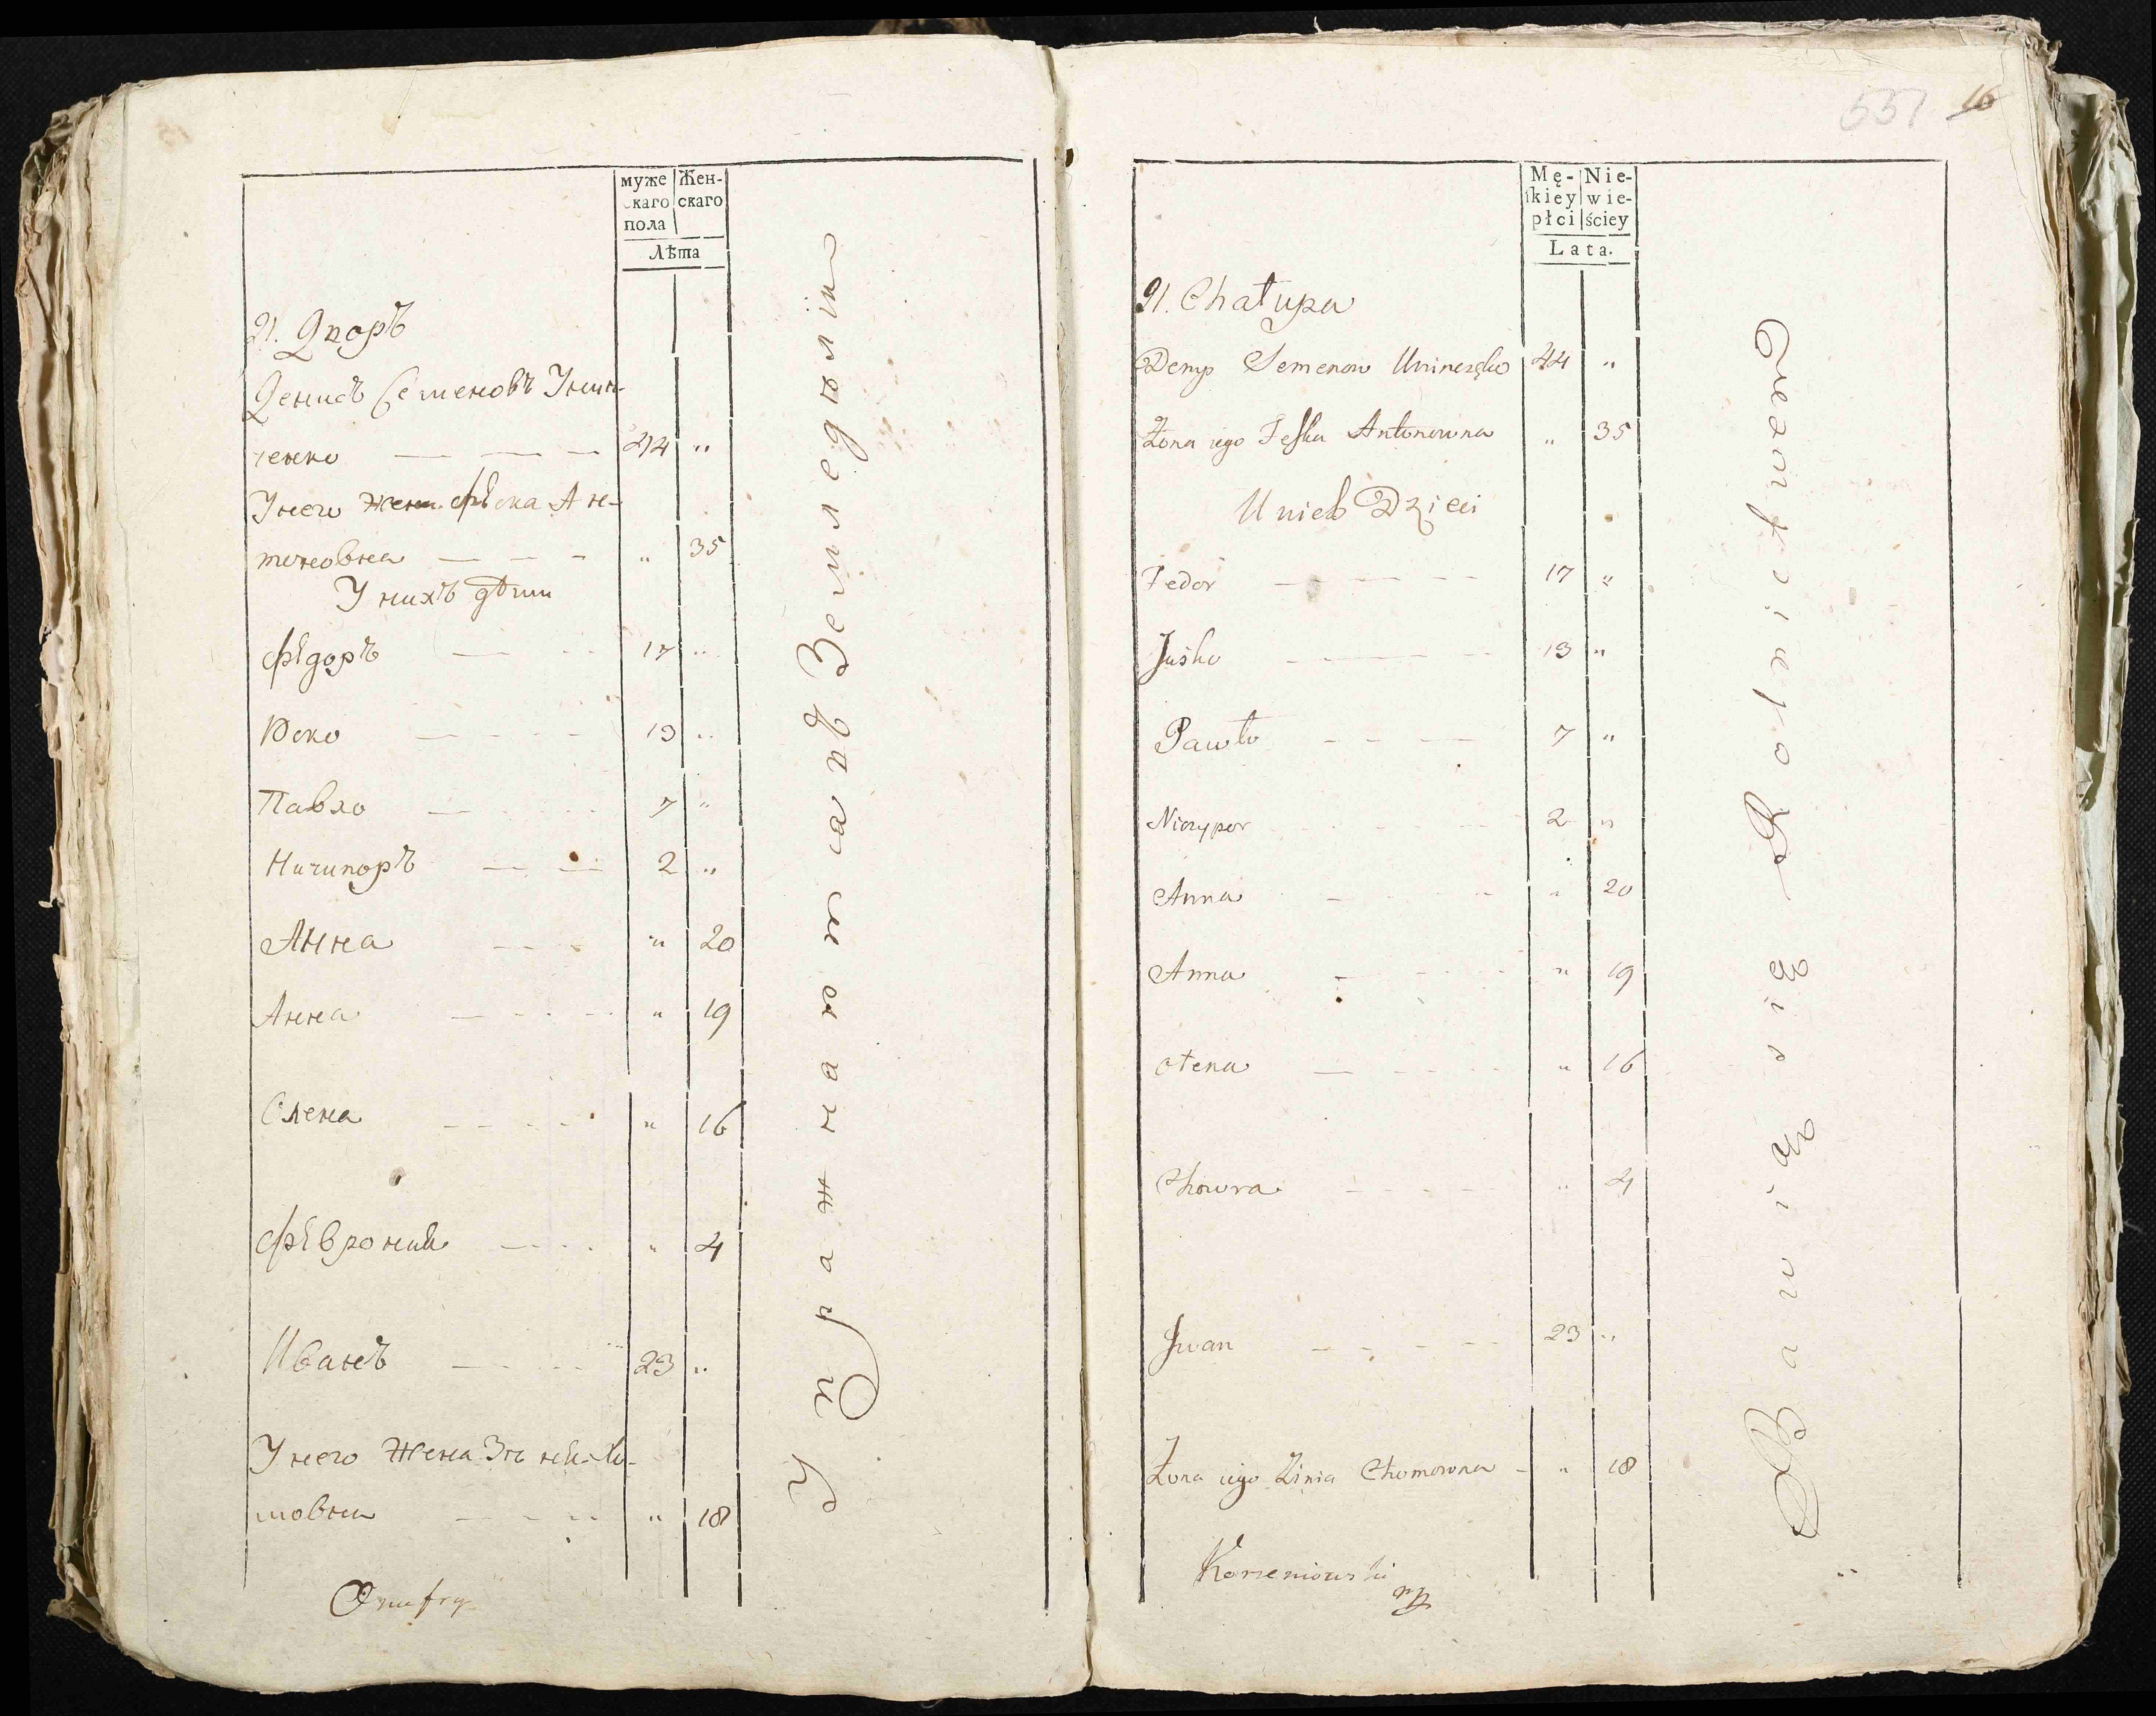 муже
скаго
пола
Жен-
скаго
Лѣта
21. Дворъ
Денисъ Семеновъ Унин-
ченко — — — 44 "
У него жена Фѣска Ан-
тоновна — — - " 35
У нихъ дѣти
Фѣдоръ — - - 17 "
Юско — - - - 13 "
Павло — - - - 7 "
Ничипоръ — — 2 "
Анна - - - " 20
Анна — - - - " 19
Олена - - - - " 16
Фѣврония — - - - " 4
Иванъ — - - - 23 "
У него Жена Хо-
мовна — - - - " 18
Onufry
Упражняются въ Земледѣлии
557 16
Mę-
skiey
płci
Nie-
wie-
ściey
Lata.
21. Chałupa
Denys Semenow Unineczko 44 "
Żona iego Feska Antonowna " 35
U nich Dzieci
Fedor — - — - - 17 "
Juśko - - — - - 13 "
Pawło - - — 7 "
Niczypor - - - - 2 "
Anna - - - - " 20
Anna - - - - " 19
Ołena — - - - - " 16
Chowra - - - - " 4
Jwan - - - - - 23 "
Żona iego Zinia Chomowna - " 18
Korzeniowski
mp
Bawią się Rolnictwem